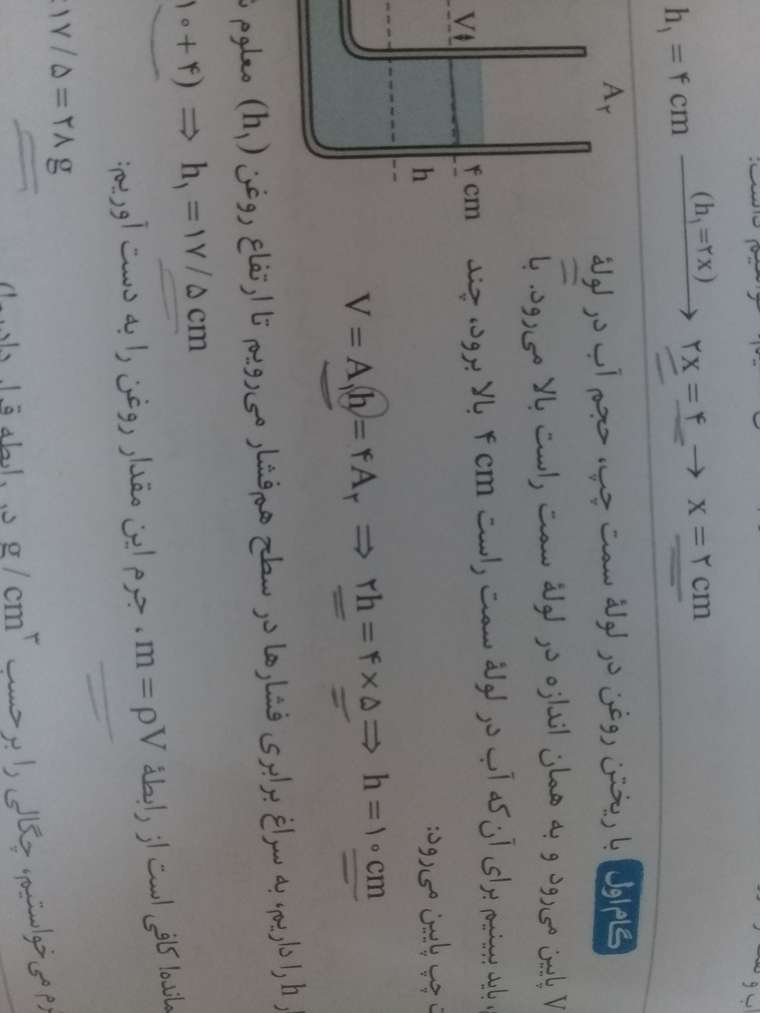 h₁ = ۴ cm ⟶ (h₁=۲x) ۲x = ۴ → x = ۲ cm
گام اول با ریختن روغن در لولهٔ سمت چپ، حجم آب در لولهٔ
V پایین می‌رود و به همان اندازه در لولهٔ سمت راست بالا می‌رود. با
باید ببینیم برای آن‌که آب در لولهٔ سمت راست ۴ cm بالا برود، چند
چپ پایین می‌رود:
A₂
V
۴ cm
h
V = A₁h = ۴A₂ ⇒ ۲h = ۴ × ۵ ⇒ h = ۱۰ cm
h را داریم، به سراغ برابری فشارها در سطح هم‌فشار می‌رویم تا ارتفاع روغن (h₁) معلوم
۱۰ + ۴) ⇒ h₁ = ۱۷/۵ cm
کافی است از رابطهٔ m = ρV، جرم این مقدار روغن را به دست آوریم:
۱۷/۵ = ۲۸ g
می‌خواستیم، چگالی را برحسب g / cm³ در رابطه قرار دادیم.